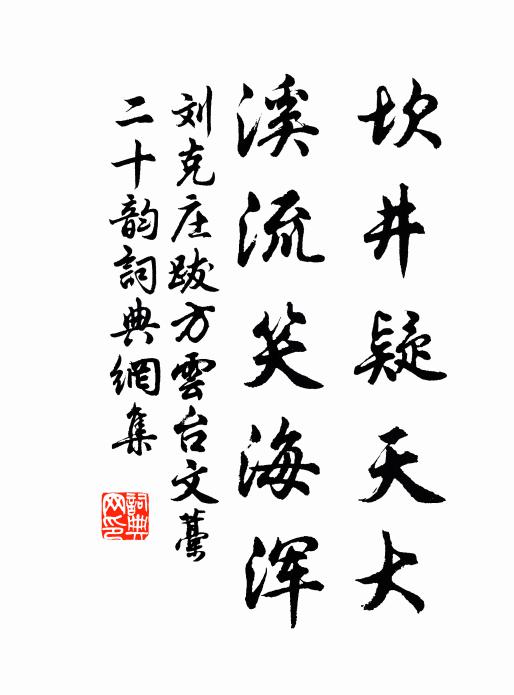 坎井疑天大
溪流笑海浑
刘克庄跋方雲台文藁
二十韵詞典網集
詞典网印